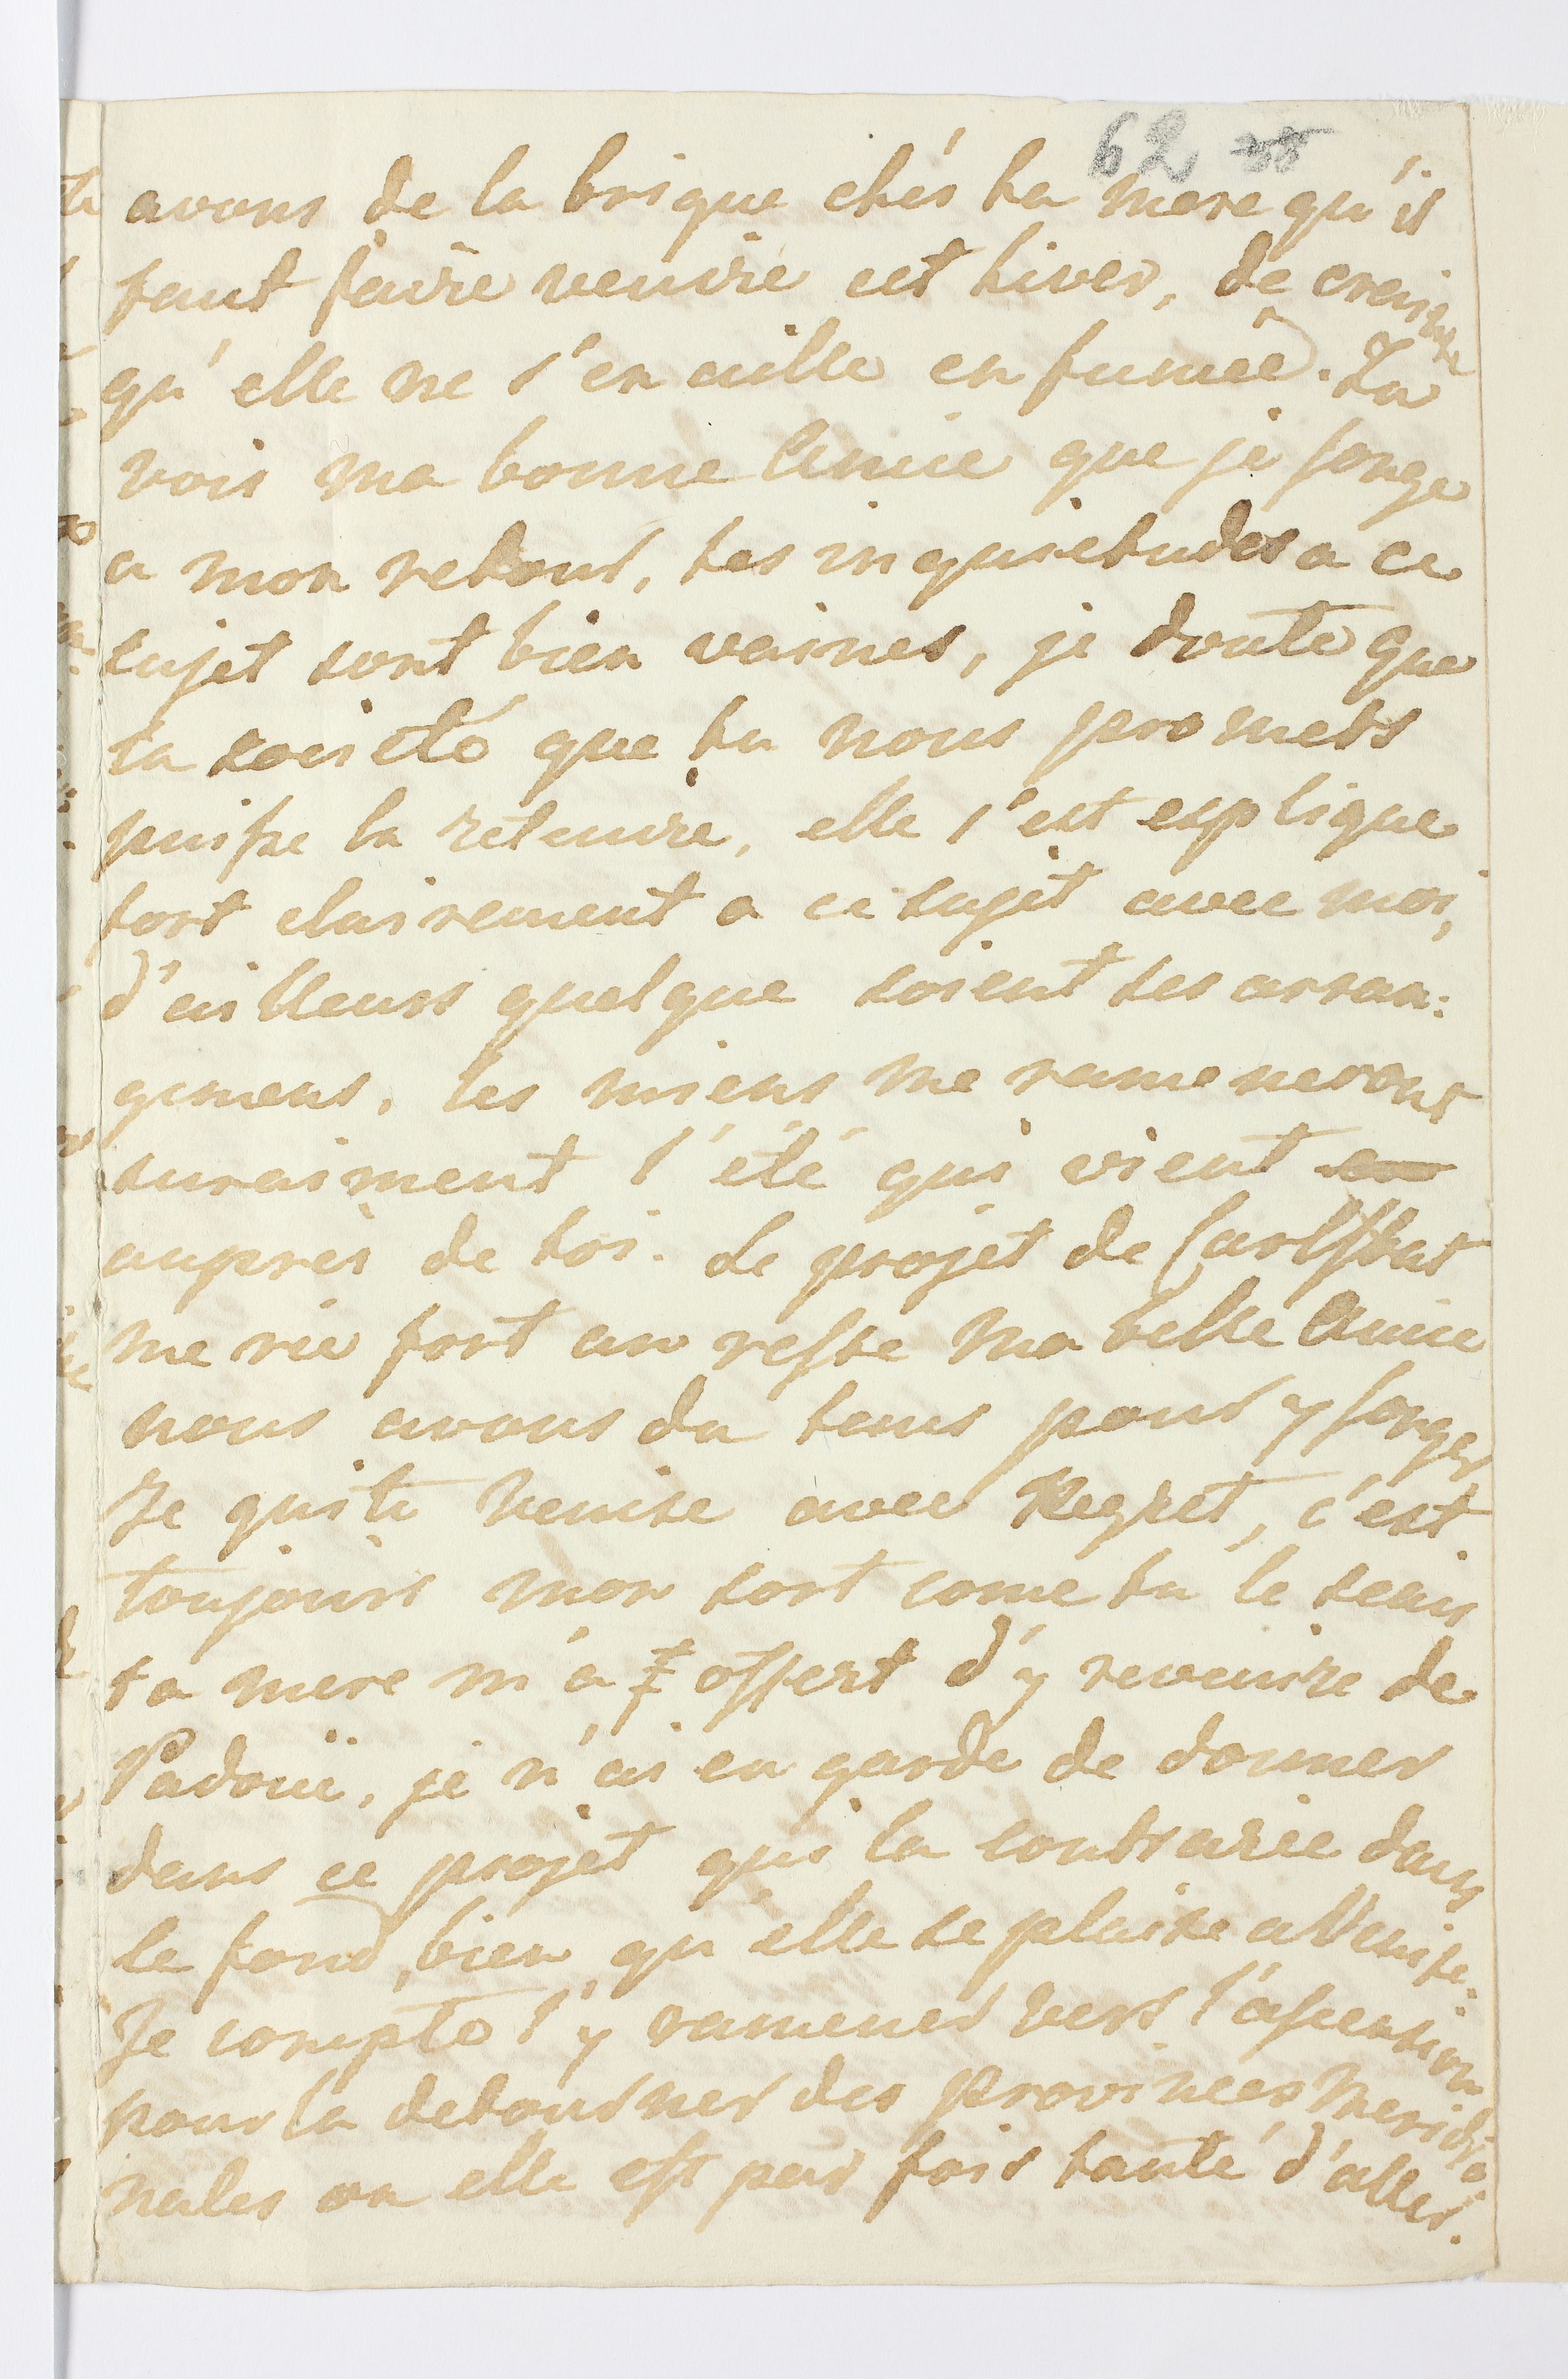 62 38
avons de la brique chés ta mere qu'il
faut faire venire cet hiver, de crainte
qu'elle ne s'en aille en fumeé. Tu
vois ma bonne Amie que je songe
a mon retour, tes inquietudes a ce
sujet sont bien vaines, je doute que
la société que tu nous promets
puisse la retenire, elle s'est explique
fort clairement a ce sujet avec moi,
d'ailleurs quelque soient ses arran:
gemens, les miens me ramenerons
suraiment l'été qui vient en
aupres de toi. Le projet de Carlsbat
me rie fort au reste ma belle Amie
nous avons du tems pour y songer
Je quite Venise avec Regret, c'est
toujours mon sort come tu le scais
ta mere m'a offert d'y revenire de
Padoüe, je n'ai eu garde de donner
dans ce projet qui la contrarie dans
le fond, bien qu'elle se plaise a Venise.
Je compte l'y ramener vers l'ascension
pour la detourner des provinces meridio
nales ou elle est par fois tanté d'aller.